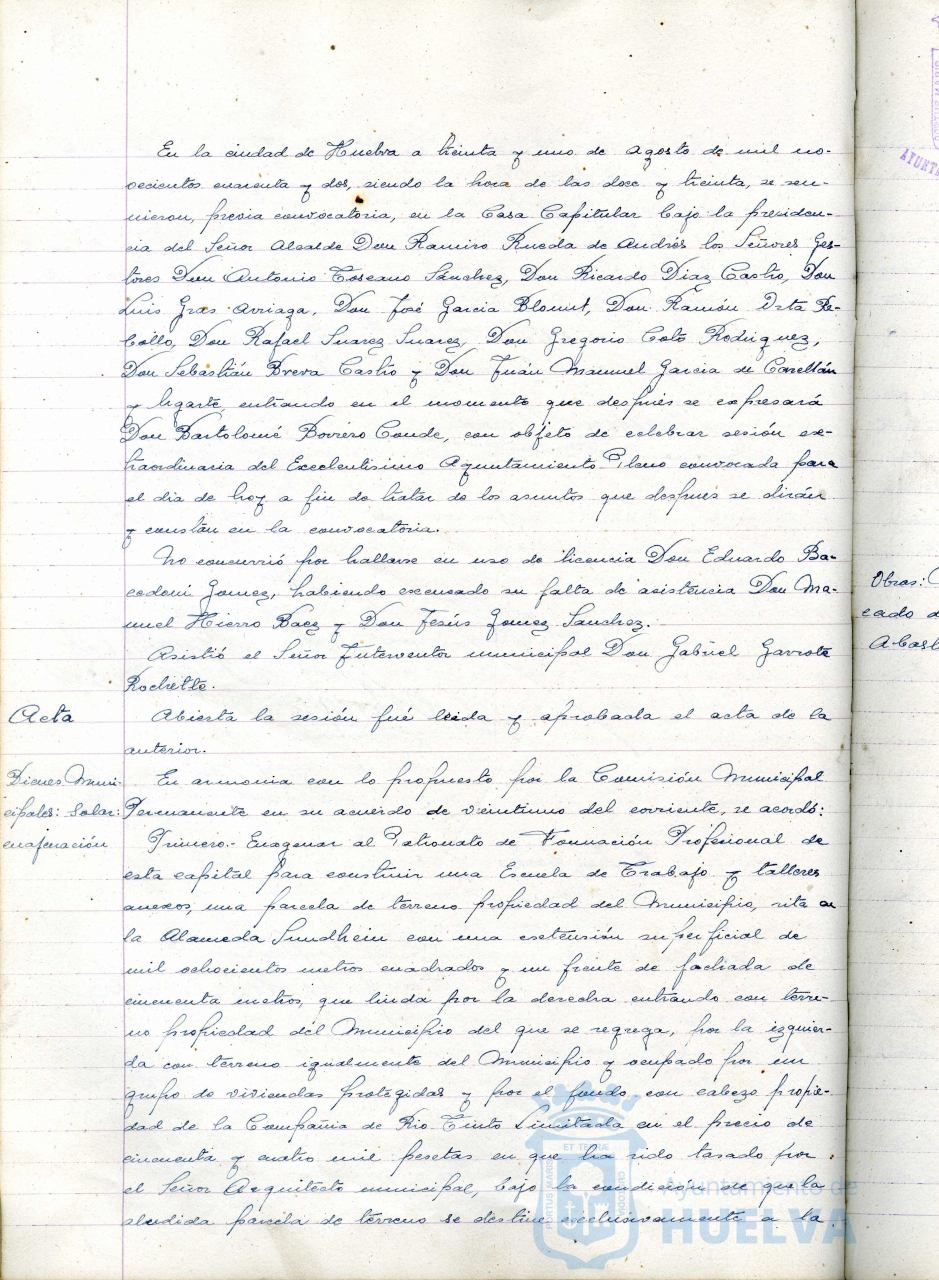 En la ciudad de Huelva a treinta y uno de agosto de mil no-
vecientos cuarenta y dos, siendo la hora de las doce y treinta, se reu-
nieron, previa convocatoria, en la Casa Capitular bajo la presiden-
cia del Señor Alcalde Don Ramiro Rueda de Andrés los Señores Ges-
tores Don Antonio Toscano Sánchez, Don Ricardo Diaz Castro, Don
Luis Gras Arriaga, Don José Garcia Blomut, Don Ramón Urta Re-
bollo, Don Rafael Suarez Suarez, Don Gregorio Coto Rodriguez,
Don Sebastián Breva Castro y Don Juán Manuel Garcia de Castellán
y Ugarte, entrando en el momento que después se expresará
Don Bartolomé Borrero Conde, con objeto de celebrar sesión ex-
traordinaria del Excelentisimo Ayuntamiento Pleno convocada para
el dia de hoy a fin de tratar de los asuntos que despues se dirán
y constan en la convocatoria.
No concurrió por hallarse en uso de licencia Don Eduardo Ba-
codoni Gomez, habiendo excusado su falta de asistencia Don Ma-
nuel Hierro Baez y Don Jesús Gomez Sanchez.
Asistió el Señor Interventor municipal Don Gabriel Garrote
Rochette.
Acta
Abierta la sesión fué leida y aprobada el acta de la
anterior.
Bienes Muni-
cipales: Solar:
enajenación
En armonia con lo propuesto por la Comisión Municipal
Permanente en su acuerdo de veintiuno del corriente, se acordó:
Primero.- Enagenar al Patronato de Formación Profesional de
esta capital para construir una Escuela de Trabajo y talleres
anexos, una parcela de terreno propiedad del Municipio, sita en
la Alameda Sundhein con una extensión superficial de
mil ochocientos metros cuadrados y un frente de fachada de
cincuenta metros, que linda por la derecha entrando con terre-
no propiedad del Municipio del que se segrega, por la izquier-
da con terreno igualmente del Municipio y ocupado por un
grupo de viviendas protegidas y por el fondo con cabezo propie-
dad de la Compañia de Rio Tinto Limitada en el precio de
cincuenta y cuatro mil pesetas en que ha sido tasado por
el Señor Arquitecto municipal, bajo la condición de que la
aludida parcela de terreno se destine exclusivamente a la
Obras:
cado d
Abast
Ayuntamiento de
HUELVA